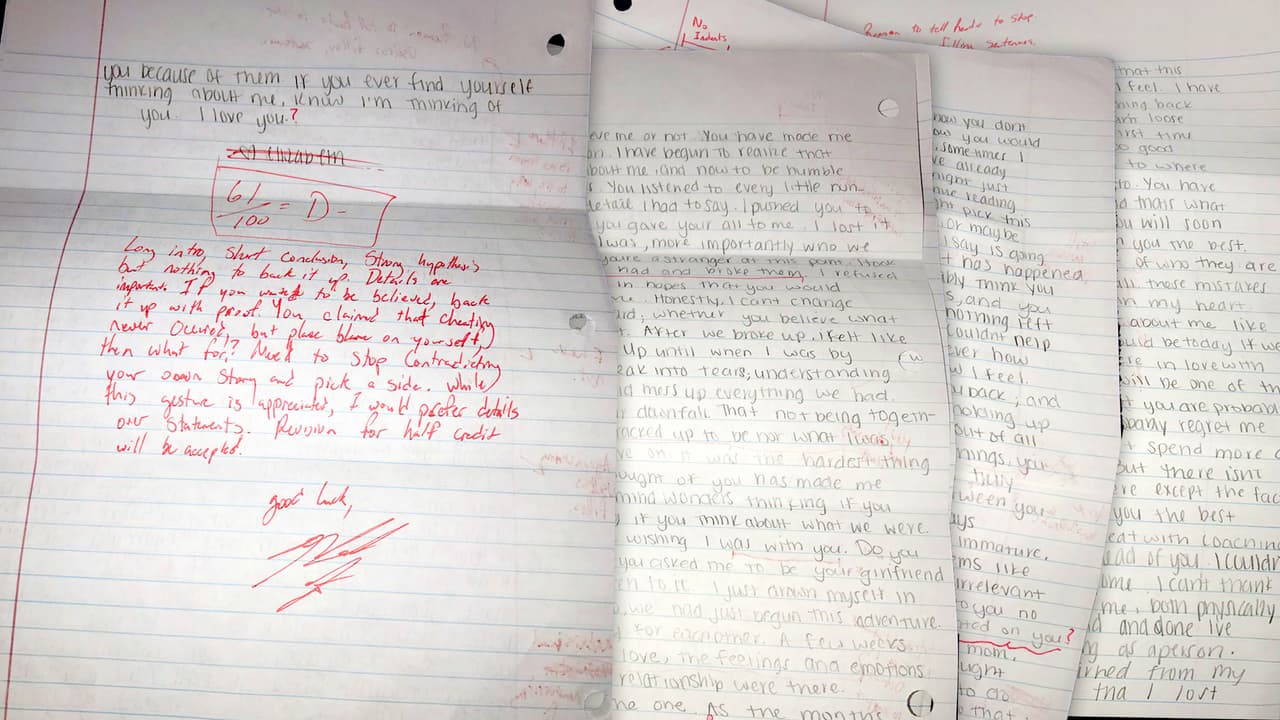 you because of them If you ever find yourself
thinking about me, know I'm thinking of
you. I love you.?
Elizabeth
61/100 = D-
Long intro, Short conclusion, Strong hypothesis
but nothing to back it up. Details are
important. If you want to be believed, back
it up with proof. You claimed that cheating
never occured, but place blame on yourself,
then what for!? Need to stop contradicting
your own story and pick a side. While
this gesture is appreciated, I would prefer details
over statements. Revision for half credit
will be accepted.
good luck,
eve me or not. You have made me
n. I have begun to realize that
bout me, and now to be humble
s. You listened to every little run-
detail I had to say. I pushed you to
you gave your all to me. I lost it
I was, more importantly who we
youre a stranger at this point. I took
had and broke them, I refused
in hopes that you would
me. Honestly, I cant change
id, whether you believe what
t. After we broke up, I felt like
up until when I was by
eak into tears, understanding
d mess up everything we had.
r downfall. That not being togeth-
racked up to be nor what I was
ve on it was the hardest thing
ought of you has made me
mind wonders thinking if you
, if you think about what we were.
wishing I was with you. Do you
you asked me to be your girlfriend
I just drown myself in
, we had just begun this adventure.
for each other. A few weeks
love, the feelings and emotions
relationship were there.
he one. As the months
No
Indents
now you dont
ow you would
, sometimes I
ve already
might just
nue reading
ght pick this
, or maybe
I say is going
t has happened,
ibly think you
s, and you
nothing left
couldnt help
ver how
w I feel.
back, and
holding up
out of all
nings, your
fully
tween you
ays
immature,
ms like
irrelevant
to you no
ted on you?
mom,
ught
to do
that
Reason to tell reader to stop
that this
I feel. I have
hing back
loose
irst time
so good
to where
to. You have
d thats what
ou will soon
n you the best.
of who they are
all these mistakes
in my heart.
about me like
ould be today if we
re in love with
will be one of th
t you are probabl
bably regret me
spend more
but there isnt
re except the fac
you the best
eat with coaching
ad of you. I couldn
me. I cant thank
me, both physically
d and done Ive
ng as a person.
rned from my
I lost